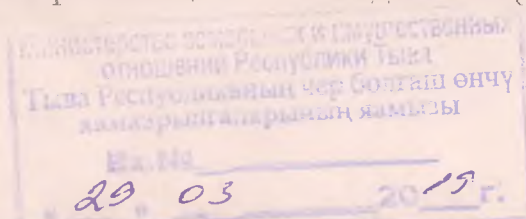 Министерство земельных и имущественных
отношений Республики Тыва
Тыва Республиканың чер болгаш өнчү
яамызы
Вх.№
" 29 " 03 2019 г.